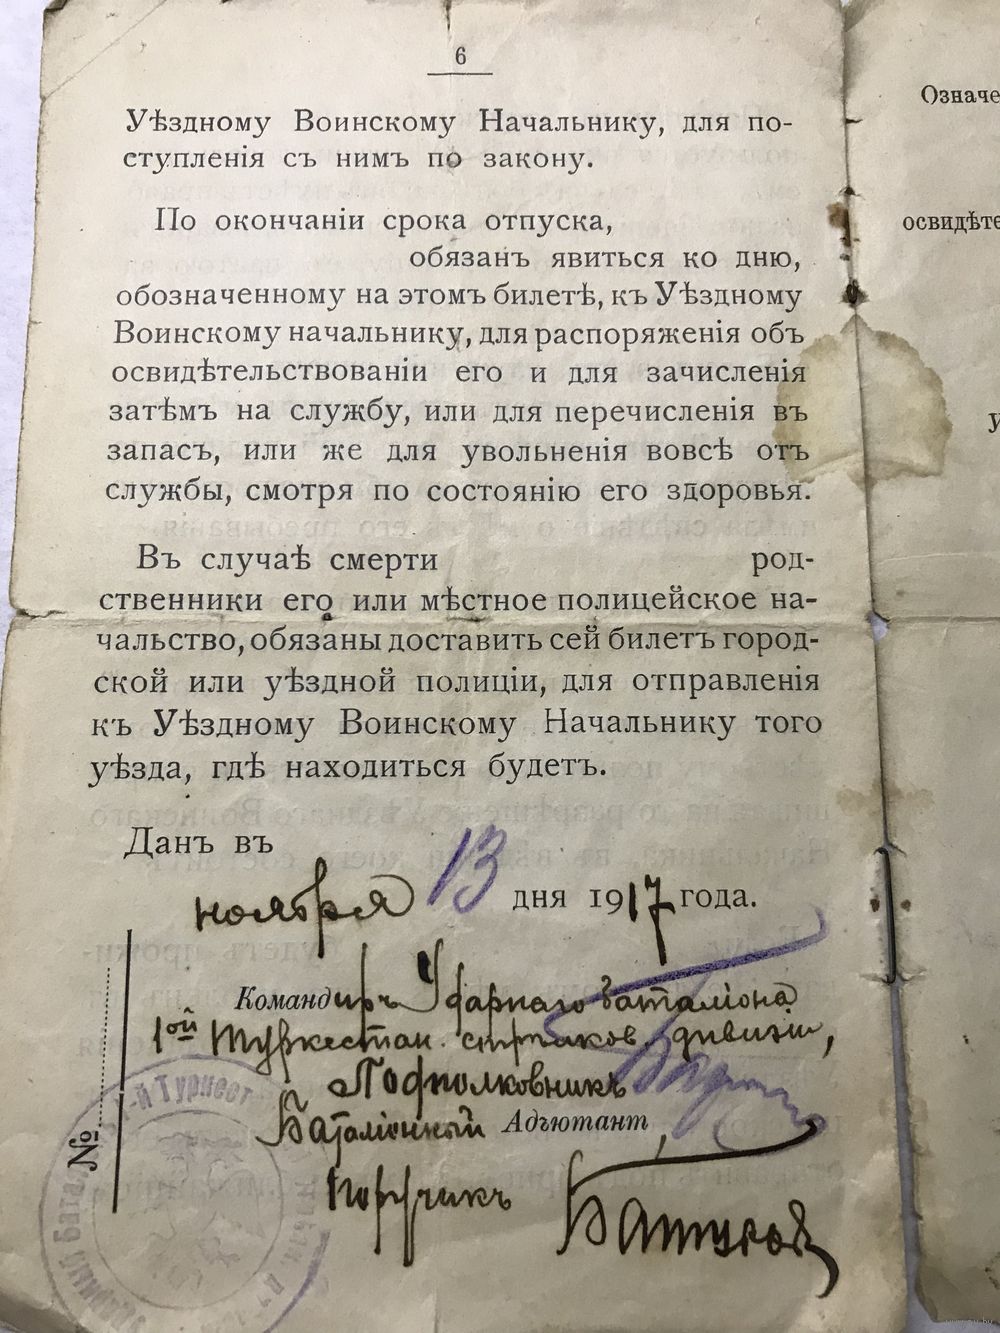 6
Уѣздному Воинскому Начальнику, для по-
ступленія съ нимъ по закону.
По окончаніи срока отпуска,
обязанъ явиться ко дню,
обозначенному на этомъ билетѣ, къ Уѣздному
Воинскому начальнику, для распоряженія объ
освидѣтельствованіи его и для зачисленія
затѣмъ на службу, или для перечисленія въ
запасъ, или же для увольненія вовсѣ отъ
службы, смотря по состоянію его здоровья.
Въ случаѣ смерти род-
ственники его или мѣстное полицейское на-
чальство, обязаны доставить сей билетъ город-
ской или уѣздной полиціи, для отправленія
къ Уѣздному Воинскому Начальнику того
уѣзда, гдѣ находиться будетъ.
Данъ въ
ноября 13 дня 1917 года.
Командиръ Ударнаго баталіона
1ой Туркестан. стрѣлков. дивизіи,
Подполковникъ
Баталіонный Адъютант,
Поручикъ
№
1-й Туркест
Означе
освидѣте
у